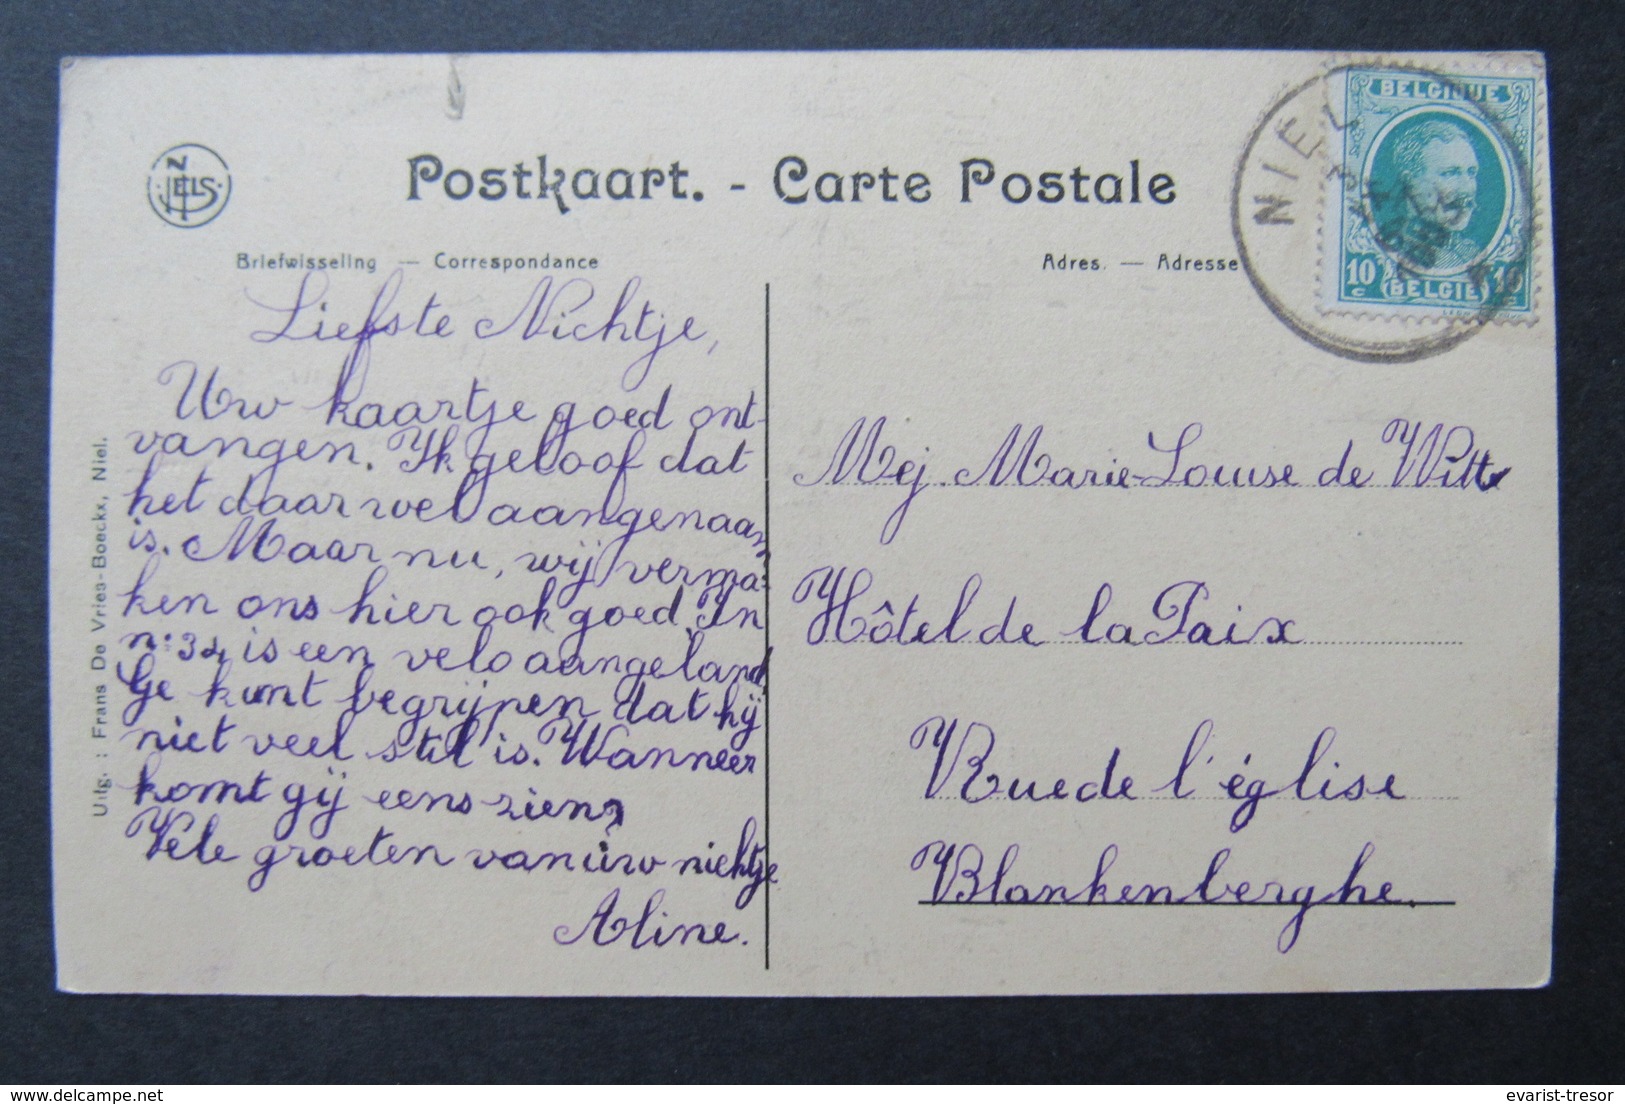 NELS
Postkaart. - Carte Postale
Briefwisseling — Correspondance
Adres. — Adresse
NIEL
BELGIQUE
10 c
BELGIË
10 c
Uitg. : Frans De Vries-Boeckx, Niel.
Liefste Nichtje,
Uw kaartje goed ont-
vangen. Ik geloof dat
het daar wel aangenaam
is. Maar nu, wij verma-
ken ons hier ook goed. In
n: 34 is een velo aangeland,
Ge kunt begrijpen dat hij
niet veel stil is. Wanneer
komt gij eens zien?
Vele groeten van uw nichtje
Aline.
Mej. Marie-Louise de Witte
Hôtel de la Paix
Rue de l'église
Blankenberghe.
delcampe.net
evarist-tresor